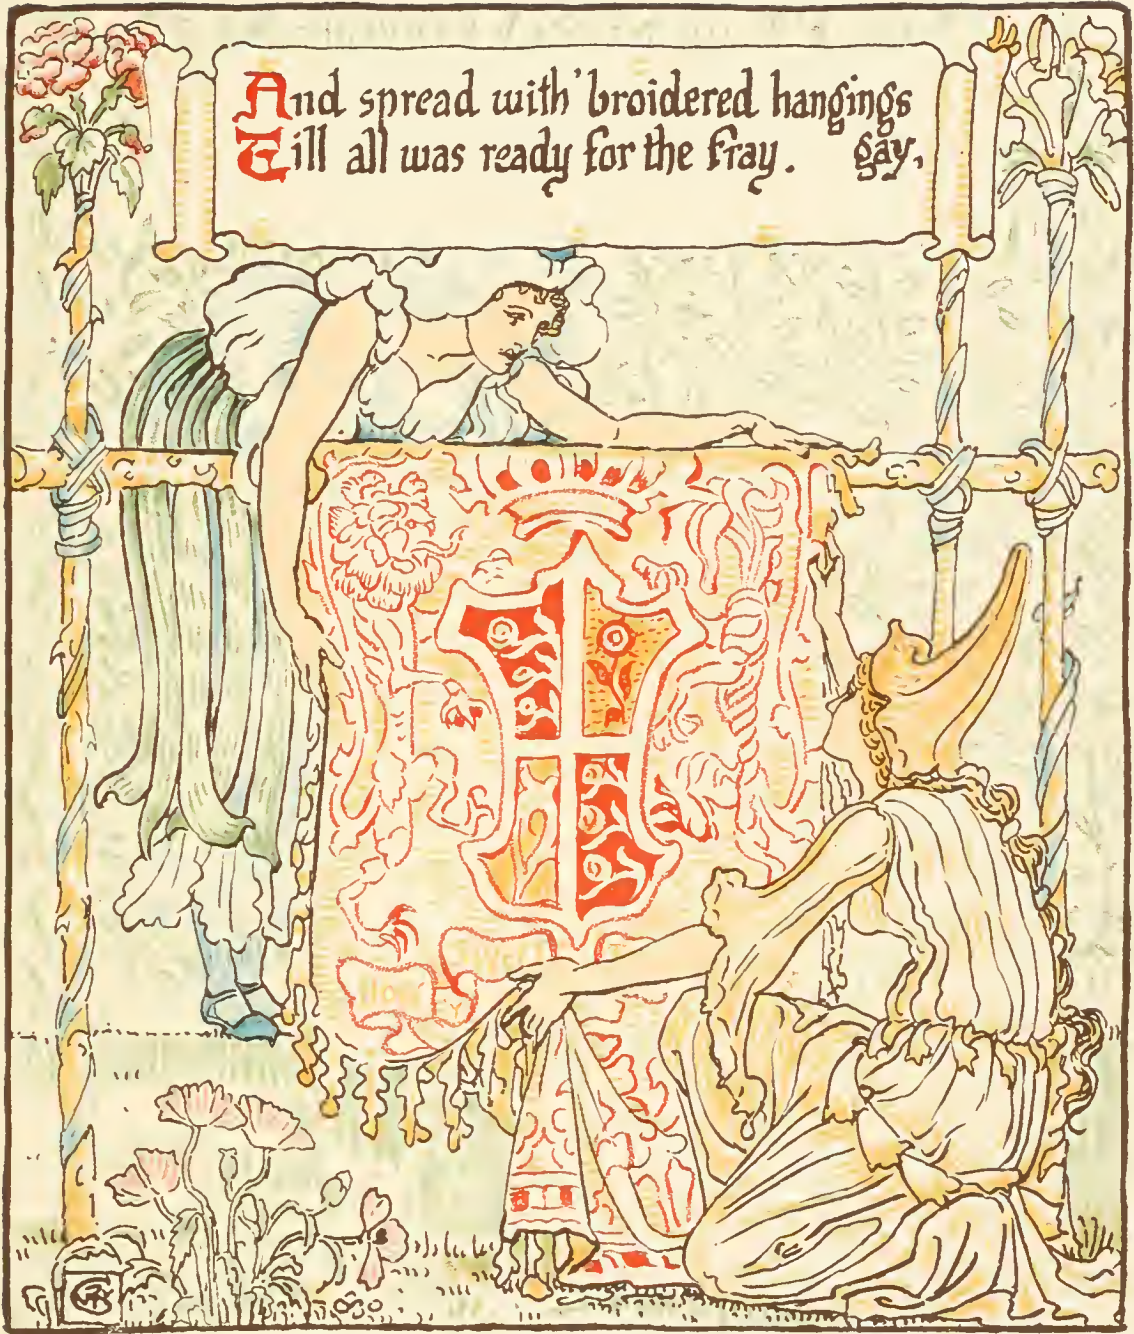 And spread with 'broidered hangings
gay,
Till all was ready for the fray.